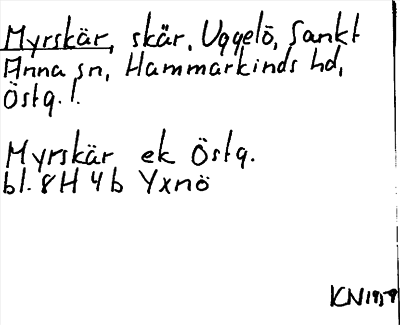 Myrskär, skär, Uggelö, Sankt
Anna sn, Hammarkinds hd,
Östg. l.
Myrskär ek Östg.
bl. 8H 4b Yxnö